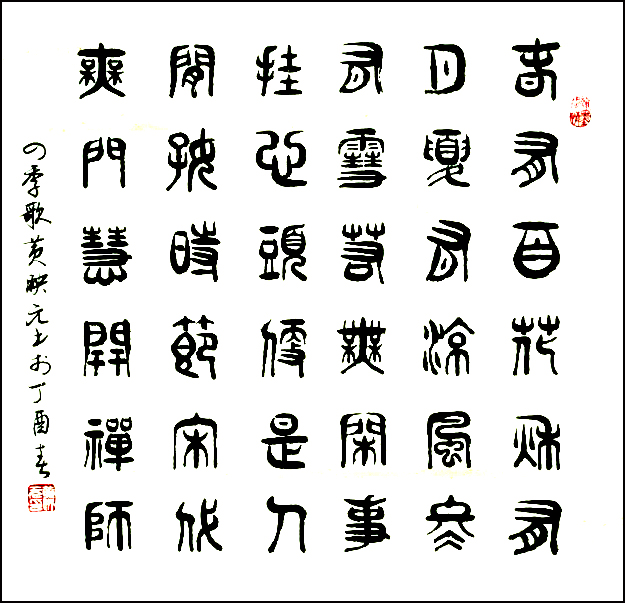 春有百花秋有
月夏有涼風冬
有雪若無閑事
挂心頭便是人
間好時節宋代
無門慧開禪師
四季歌黄映元书於丁酉春